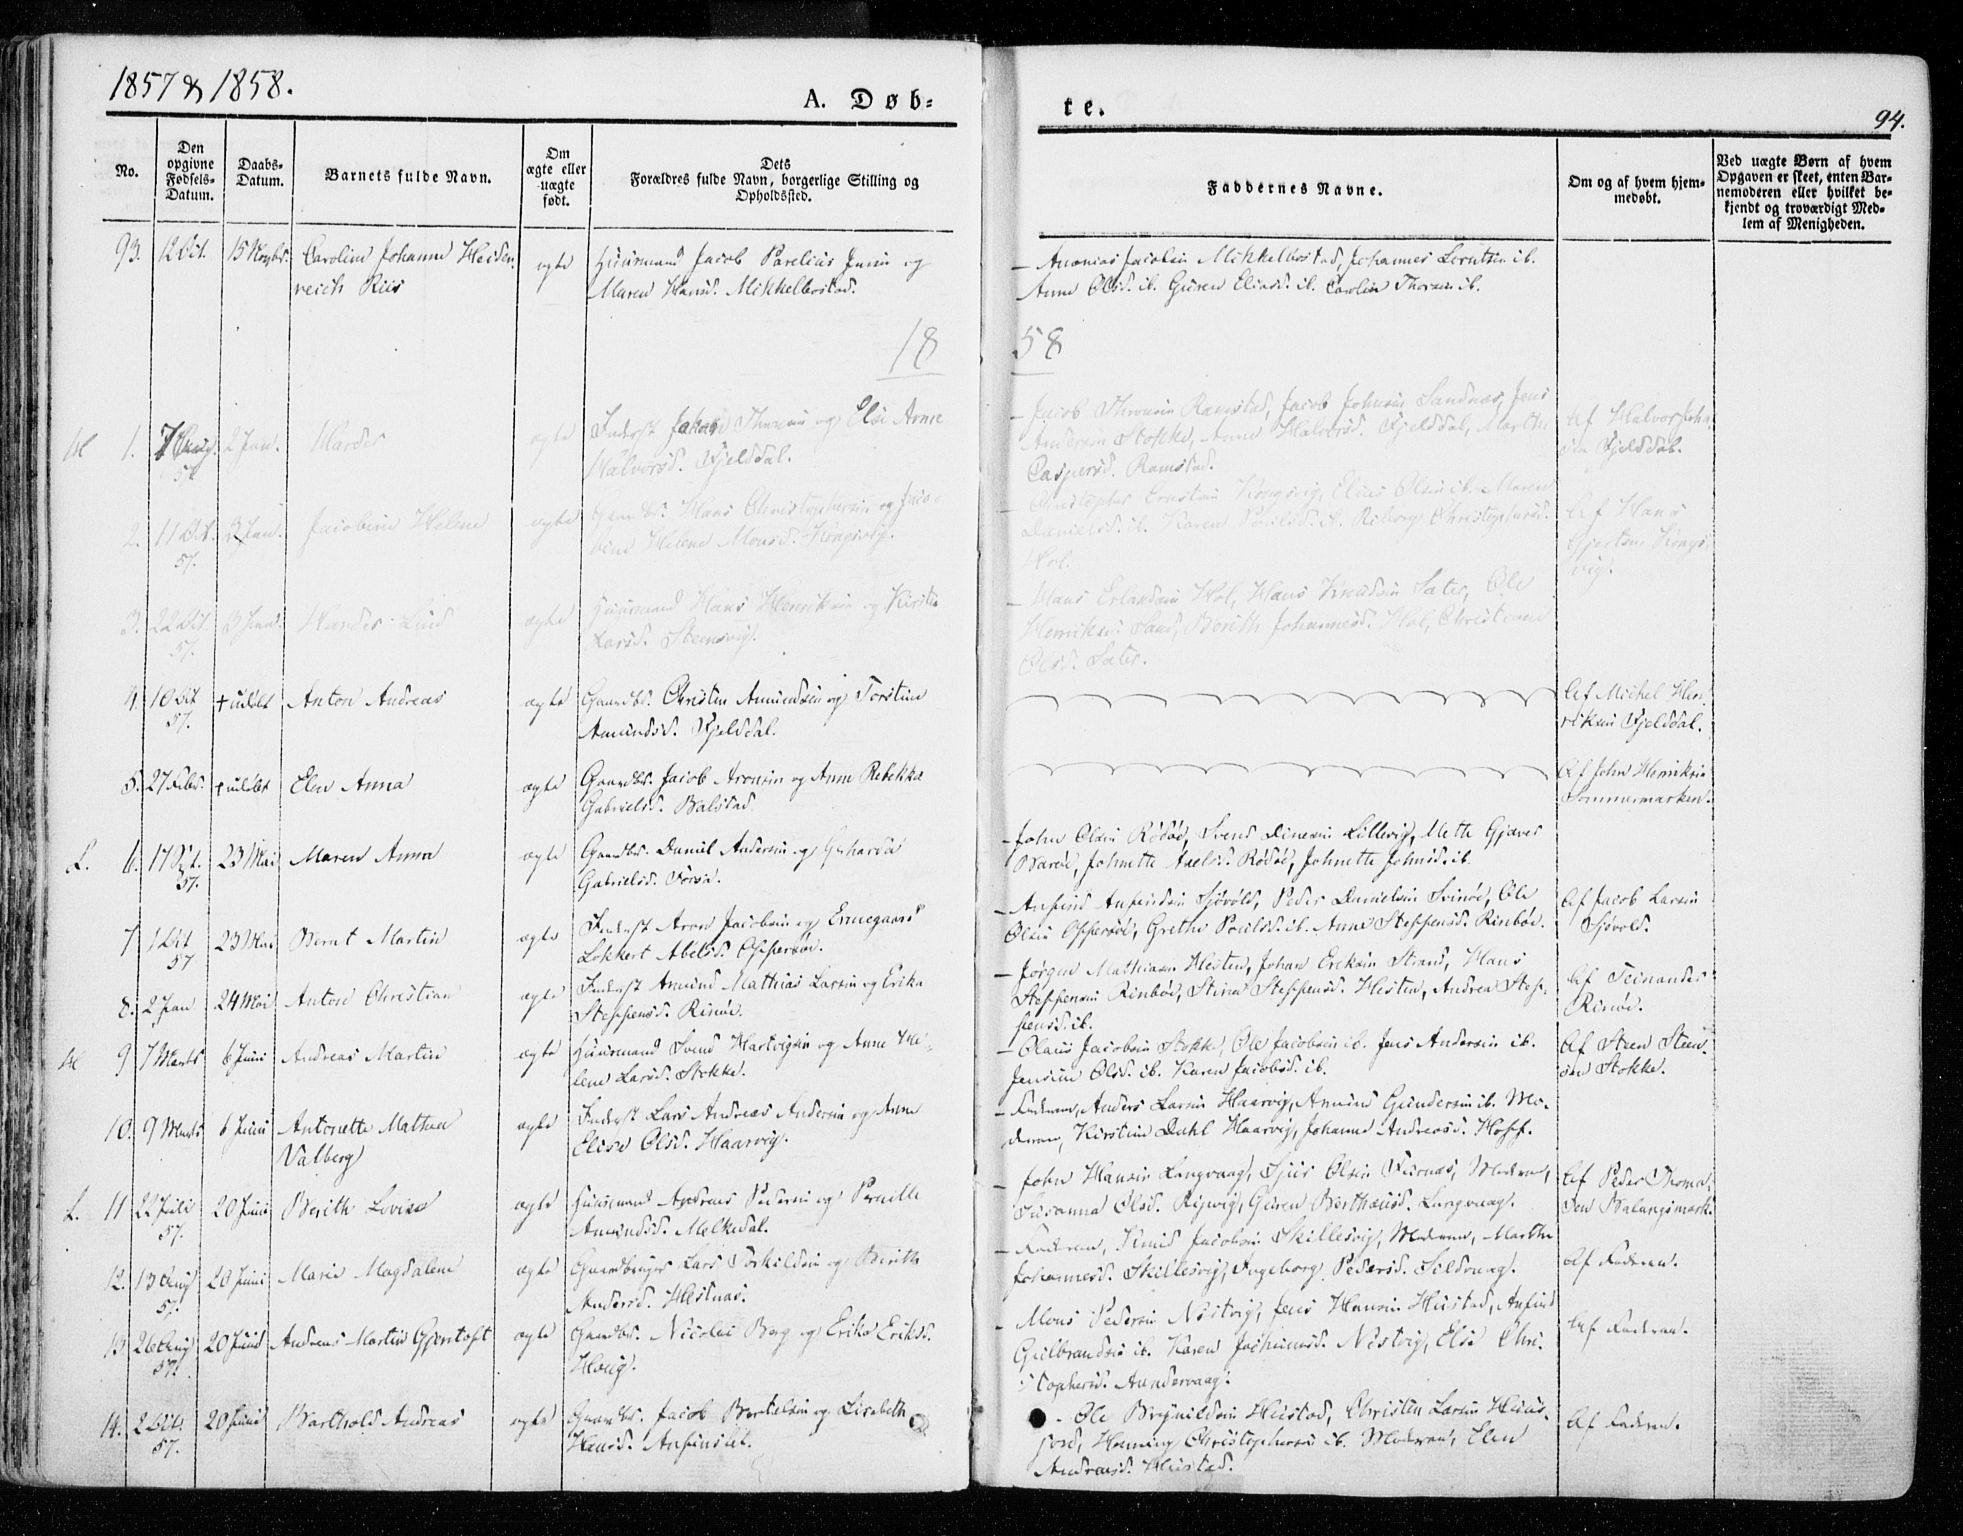 1857 & 1858.
A. Døb-
te.
94.
No.
Den opgivne Fødsels-Datum.
Daabs-Datum.
Barnets fulde Navn.
Om ægte eller uægte født.
Dets Forældres fulde Navn, borgerlige Stilling og Opholdssted.
Faddernes Navne.
Om og af hvem hjem-medøbt.
Ved uægte Børn af hvem Opgaven er skeet, enten Bar-nemoderen eller hvilket be-kjendt og troværdigt Med-lem af Menigheden.
93. 12 Oct. 15 Novbr. Carolin Johanne Heiden- ægte Huusmand Jacob Parelius Juin og
reich Riis Maren Hansd. Mikkelbostad.
Ananias Jacobsen Mikkelbostad, Johannes Berntsen ib.
Anne Olsd. ib. Guren Eliasd. ib. Carolin Thorsen ib.
18 58
1. 7 Aug. 57 2 Jan. ægte Inderst Jakob og Else Anne
Halvorsd. Fjelddal.
Jacob Ramstad, Jacob Johnsen Sandnæs, Jens
Andersen Stokke, Anne Halvorsd. Fjelddal, Marthe
Caspersd. Ramstad.
Af Halvor Joha-
sen Fjelddal.
2. 11 Oct. 57. 3 Jan. Jacobine Helene ægte Gaardbr. Hans Christophersen og Jaco-
bine Helene Monsd. Kongsvig.
Christopher Erntsen Kongsvig, Elias Olsen ib. Maren
Danielsd. ib. Karen ib. Christophersd.
Hol.
Af Hans
Kongs-
vig.
3. 22 Oct. 57. 3 Jan. ægte Huusmand Hans Henriksen og Kirstin
Larsd. Steensvig.
Hans Erlandsen Hol, Hans Knudsen Sater, Ole
Henriksen Sand, Berith Johannesd. Hol, Christiane
Olsd. Sater.
4. 10 Oct 57. + udøbt Anton Andreas ægte Gaardbr. Christen Amundsen og Torstine
Amundsd. Fjelddal.
Af Michel Hen-
riksen Fjelddal.
5. 27 Febr. + udøbt Elen Anna ægte Gaardbr. Jacob Aronsen og Anne Rebekka
Gabrielsd. Balstad
Af John Henriksen
Sommermarken.
L. 6. 17 Oct. 57. 23 Mai Maren Anna ægte Gaardbr. Daniel Andersen og Gjerharda
Gabrielsd. Forsø.
John Olsen Rødøe, Svend Dinesen Lillevig, Mette Gjæver
Barøe, Johnette Axelsd. Rødøe, Johnette Johnsd. ib.
7 1 Oct 57 23 Mai Bernt Martin ægte Inderst Aron Jacobsen og Ermegaard
Lokkert Abelsd. Offersøe.
Anfind Anfindsen Sjøvold, Peder Danielsen Svinøe, Ole
Olsen Offersøe, Grethe Poulsd. ib. Anne Steffensd. Rinbøe.
Af Jacob Larsen
Sjøvold.
8. 2 Jan 24 Mai Anton Christian ægte Inderst Amund Mathias Larsen og Erika
Steffensd. Rinøe.
Jørgen Mathiasen Hesten, Johan Ericksen Strand, Hans
Steffensen Rinbøe, Stina Steffensd. Hesten, Andrea Stef-
fensd. ib.
Af Feinander
Rinøe.
9 7 Marts 6 Juni Andreas Martin ægte Huusmand Svend Hartvigsen og Anne He-
lene Larsd. Stokke.
Olaus Jacobsen Stokke, Ole Jacobsen ib. Jens Andersen ib.
Jensine Olsd. ib. Karen Jacobsd. ib.
Af Steen Steen-
sen Stokke.
10. 9 Marts 6 Juni Antonette Mathea ægte Inderst Lars Andreas Andersen og Anne
Valberg Elise Olsd. Haarvig.
Faderen, Anders Larsen Haarvig, Amund Gundersen ib. Mo-
deren, Kirstine Dahl Haarvig, Johanne Andreasd. Hoff.
L. 11 22 Juli 57. 20 Juni Berith Lovise ægte Huusmand Andreas Pedersen og Pernille
Amundsd. Melkedal.
John Hansen Langvaag, Sjur Olsen Fuirnæs, Moderen,
Susanna Olsd. Rijsvig, Guren Berthæusd. Langvaag.
Af Peder Thoma-
sen Balangsmark.
12. 13 Aug 57. 20 Juni Marie Magdalene ægte Gaardbruger Lars Torkildsen og Berith
Andersd. Hestnæs.
Faderen, Knud Jacobsen Skillesvig, Moderen, Marthe
Johannesd. Skillesvig, Ingeborg Pedersd. Sildvaag.
Af Faderen.
13 26 Aug 57. 20 Juni Andreas Martin Gjentoft ægte Gaardbr. Nicolai Berg og Erika Eriksd.
Houg.
Mons Pedersen Nistvig, Jens Hansen Hustad, Anfind
Gulbrandsen ib. Karen Jochumsd. Nistvig, Else Chri-
stophersd. Aundervaag.
Af Faderen.
14. 2 Oct. 57. 20 Juni Barthold Andreas ægte Gaardbr. Jacob Bertelsen og Lisabeth
Hansd. Anfinslet.
Ole Brynildsen Hustad, Christen Larsen Huus-
jord, Henning Christophersen ib. Moderen, Elen
Andreasd. Hustad.
Af Faderen.